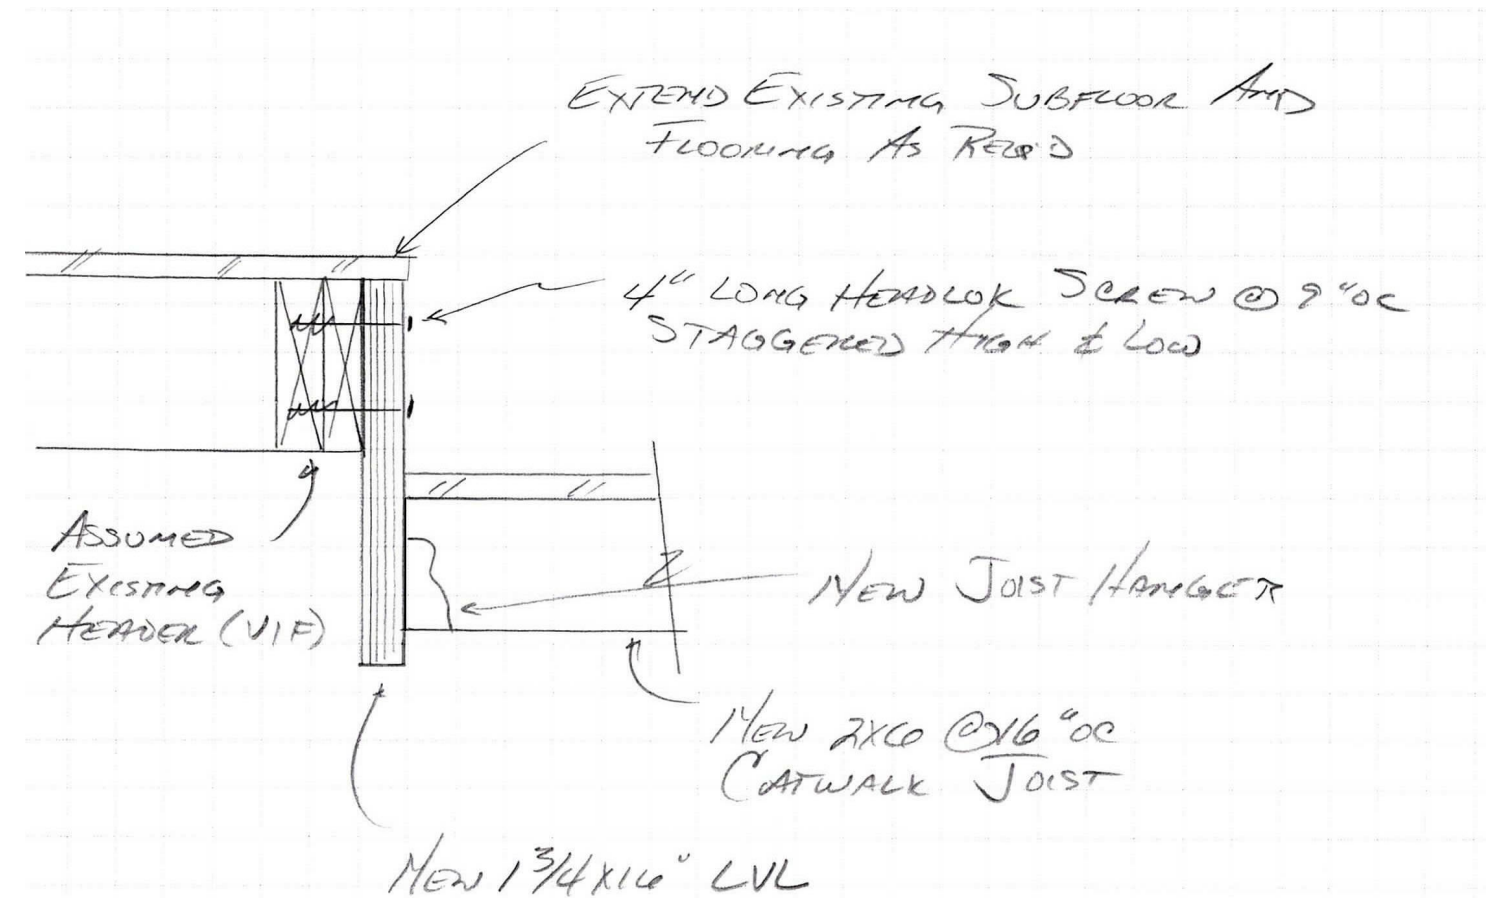 EXTEND EXISTING SUBFLOOR AND
FLOORING AS REQ'D
4" LONG HEADLOK SCREW @ 9"OC
STAGGERED HIGH & LOW
ASSUMED
EXISTING
HEADER (VIF)
NEW JOIST HANGER
NEW 2X6 @ 16"OC
CATWALK JOIST
NEW 1 3/4 X 16" LVL